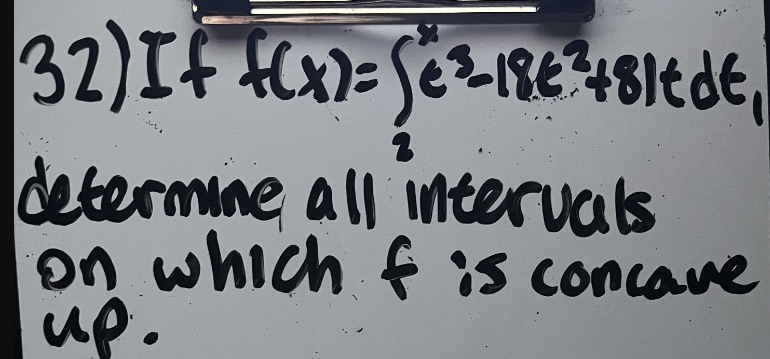 32) If f(x)=∫₂ˣ t³-18t²+81t dt,
determine all intervals
on which f is concave
up.